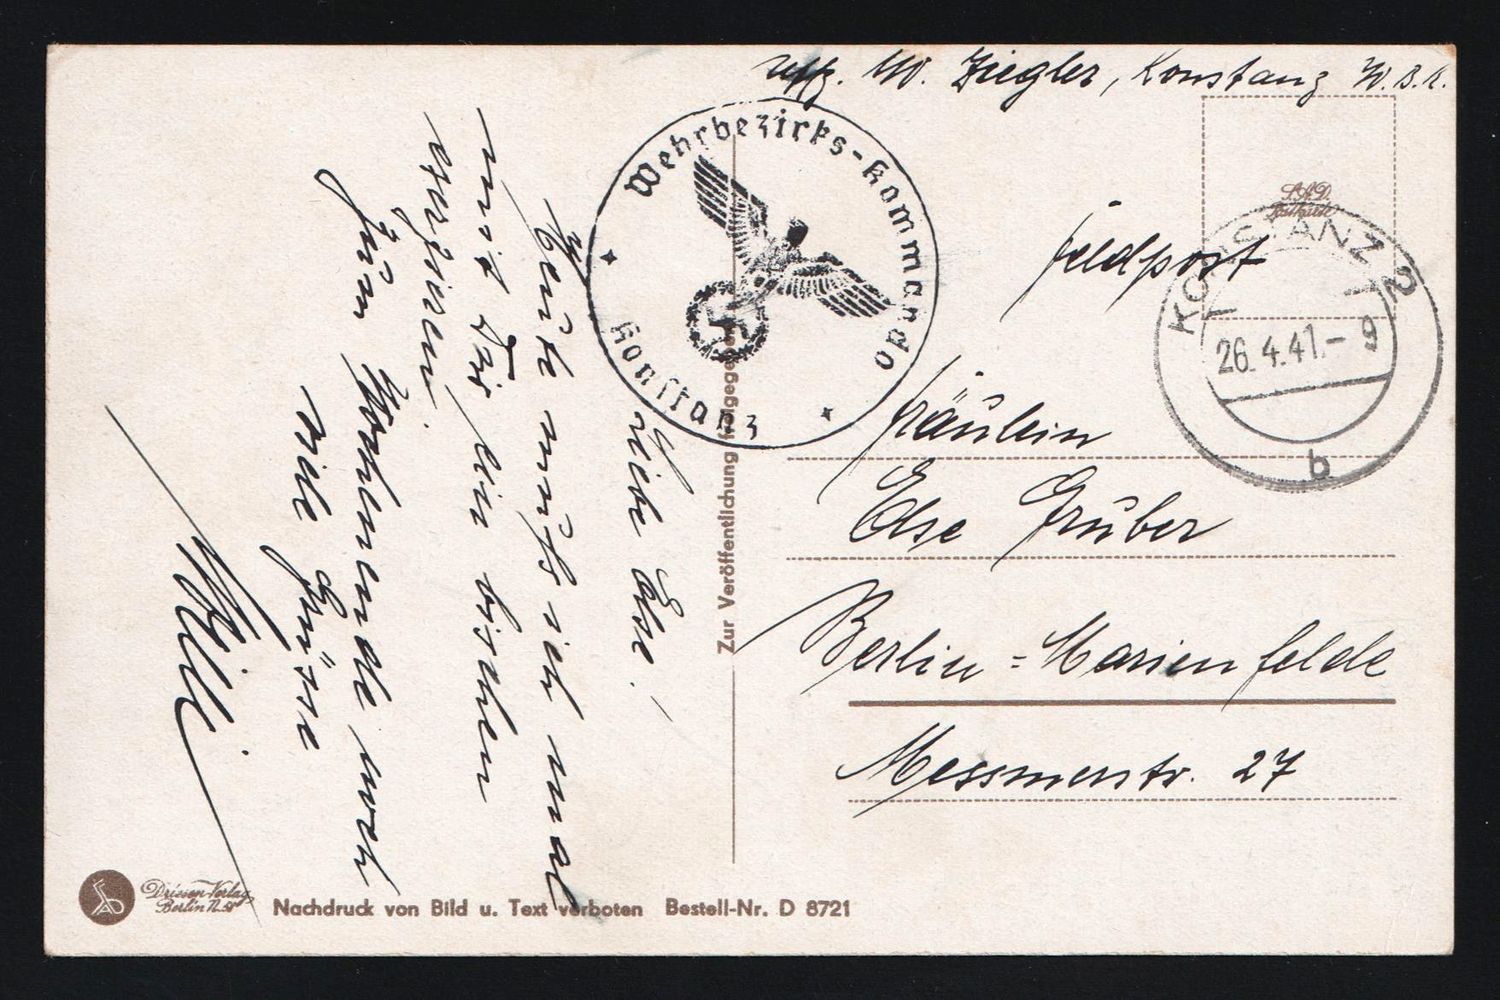 Uffz. W. Ziegler, Konstanz W.B.K.
Wehrbezirks-Kommando
Konstanz
Feldpost
KONSTANZ 2
26.4.41.-9
b
Fräulein
Else Gruber
Berlin=Marienfelde
Messmerstr. 27
Liebe Else!
Heute muß ich mal
mit Dir ein bischen
Zum Wochenende noch
viele Grüsse
Willi
Zur Veröffentlichung freigegeben
Driesen-Verlag
Berlin
Nachdruck von Bild u. Text verboten Bestell-Nr. D 8721